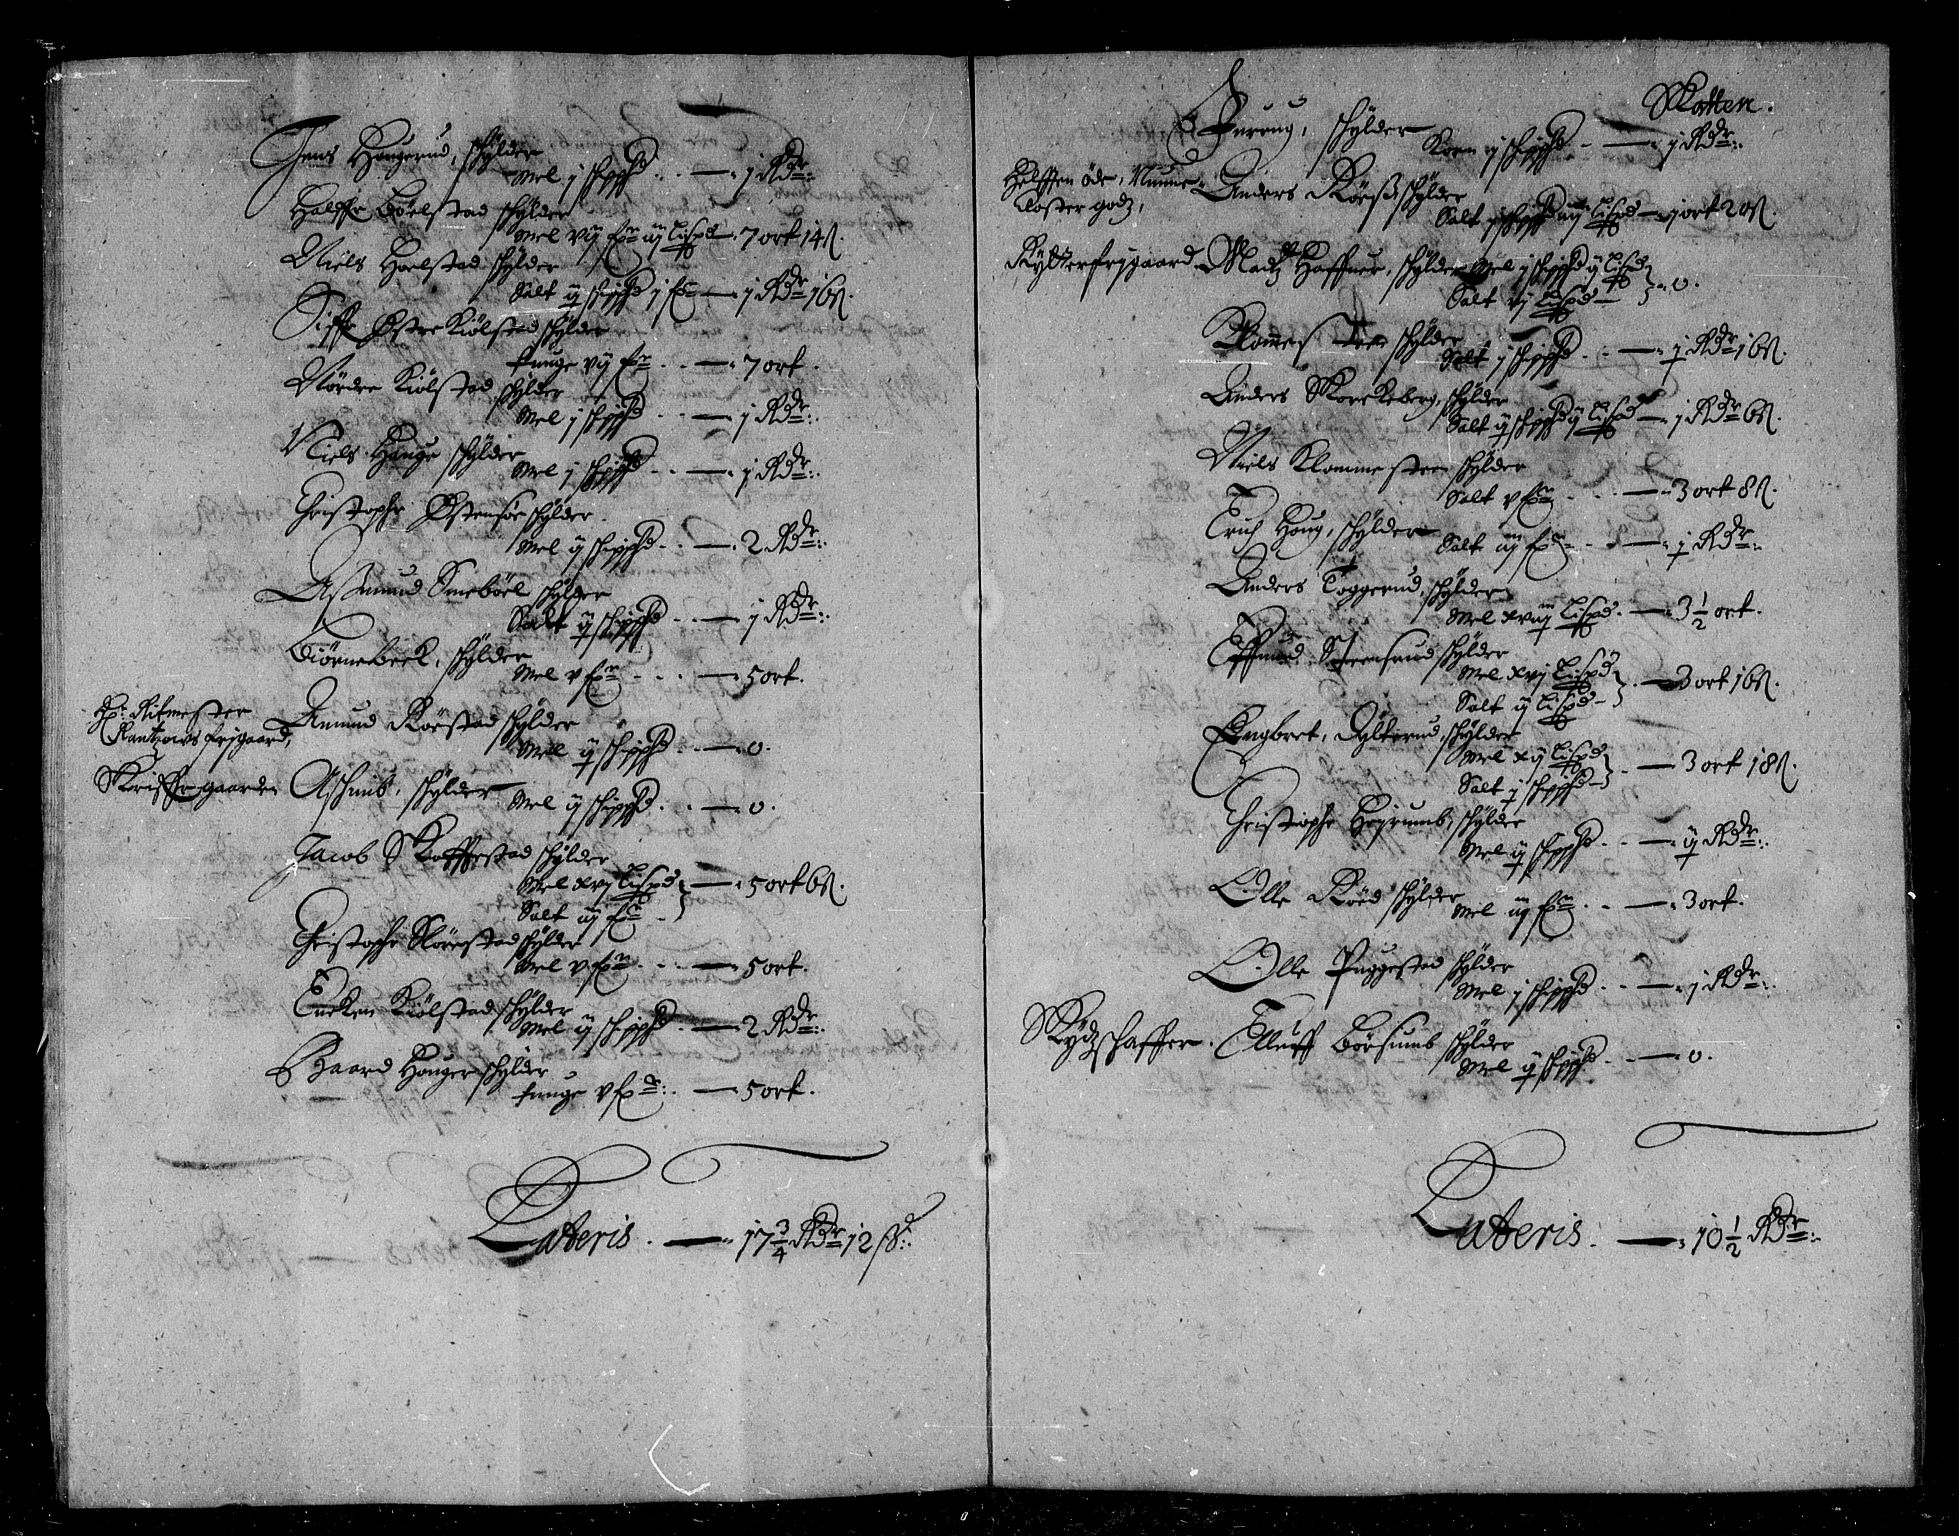 Jens Haugerud, schylder
Mel j schippd — j Rdr
Halffr Böelstad schylder
Mel vij fr iij Lispd — 7 ort 14 ß.
Niels Hoelstad schylder
Salt ij schippd j fr — j Rdr 16 ß.
Siffr Østre Kiölstad schylder
tunge vij fr — 7 ort.
Nördre Kiölstad schylder
Mel j schippd — j Rdr
Niels Hauge schylder
Mel j schippd — j Rdr
Christopher Østensöe schylder
Mel ij schippd — 2 Rdr
Aßmund Smeböel schylder
Salt ij schippd — j Rdr
Biörnebeck, schylder
Mel v fr — 5 ort.
Hr: Ritmester
Rantzows frjgaard,
Amund Rörstad schylder
Mel ij schippd — 0.
Skriffregaarde
Aschimb, schylder
Mel ij schippd — 0.
Jacob Skoffestad schylder
Mel xvj Lispd
Salt iij fr — 5 ort 6 ß.
Christopher Slörestad schylder
Mel v fr — 5 ort.
Encken Kiölstad schylder
Mel ij schippd — 2 Rdr
Baard Houger schylder
tunge v fr — 5 ort.
Lateris. — 17 3/4 Rdr 12 ß.
Skatten.
Furrug, schylder
Korn ij schippd — j Rdr
Helfften öde, Nunne
Closter godz,
Anders Röeß schylder
Salt j schippd iiij Lispd — j ort 20 ß.
Rytterfrjgaard
Madz Haffner, schylder Mel j schippd ij Lispd
Salt vij Lispd — 0.
Klommesteen schylder
Salt j schippd — j Rdr 16 ß.
Anders Skorckeberg, schylder
Salt ij schippd ij Lispd — j Rdr 6 ß.
Niels Klommesteen schylder
Salt v fr — 3 ort 8 ß.
Erich Houg, schylder
Salt iij fr — j Rdr
Anders Toggerud, schylder
Mel xviij Lispd. — 3 1/2 ort.
Effuind Steensrud schylder
Mel xvj Lispd
Salt ij Lispd — 3 ort 16 ß.
Engbret, Dylterud, schylder
Mel xij Lispd
Salt j schippd — 3 ort 18 ß.
Christopher Hegrumb, schylder
Mel ij schippd — ij Rdr
Olle Röed schylder
Mel iij fr — 3 ort.
Olle Puggestad schylder
Mel j schippd — j Rdr
Skydzschaffer.
Elluff Börsumb schylder
Mel ij schippd — 0.
Lateris. — 10 1/2 Rdr